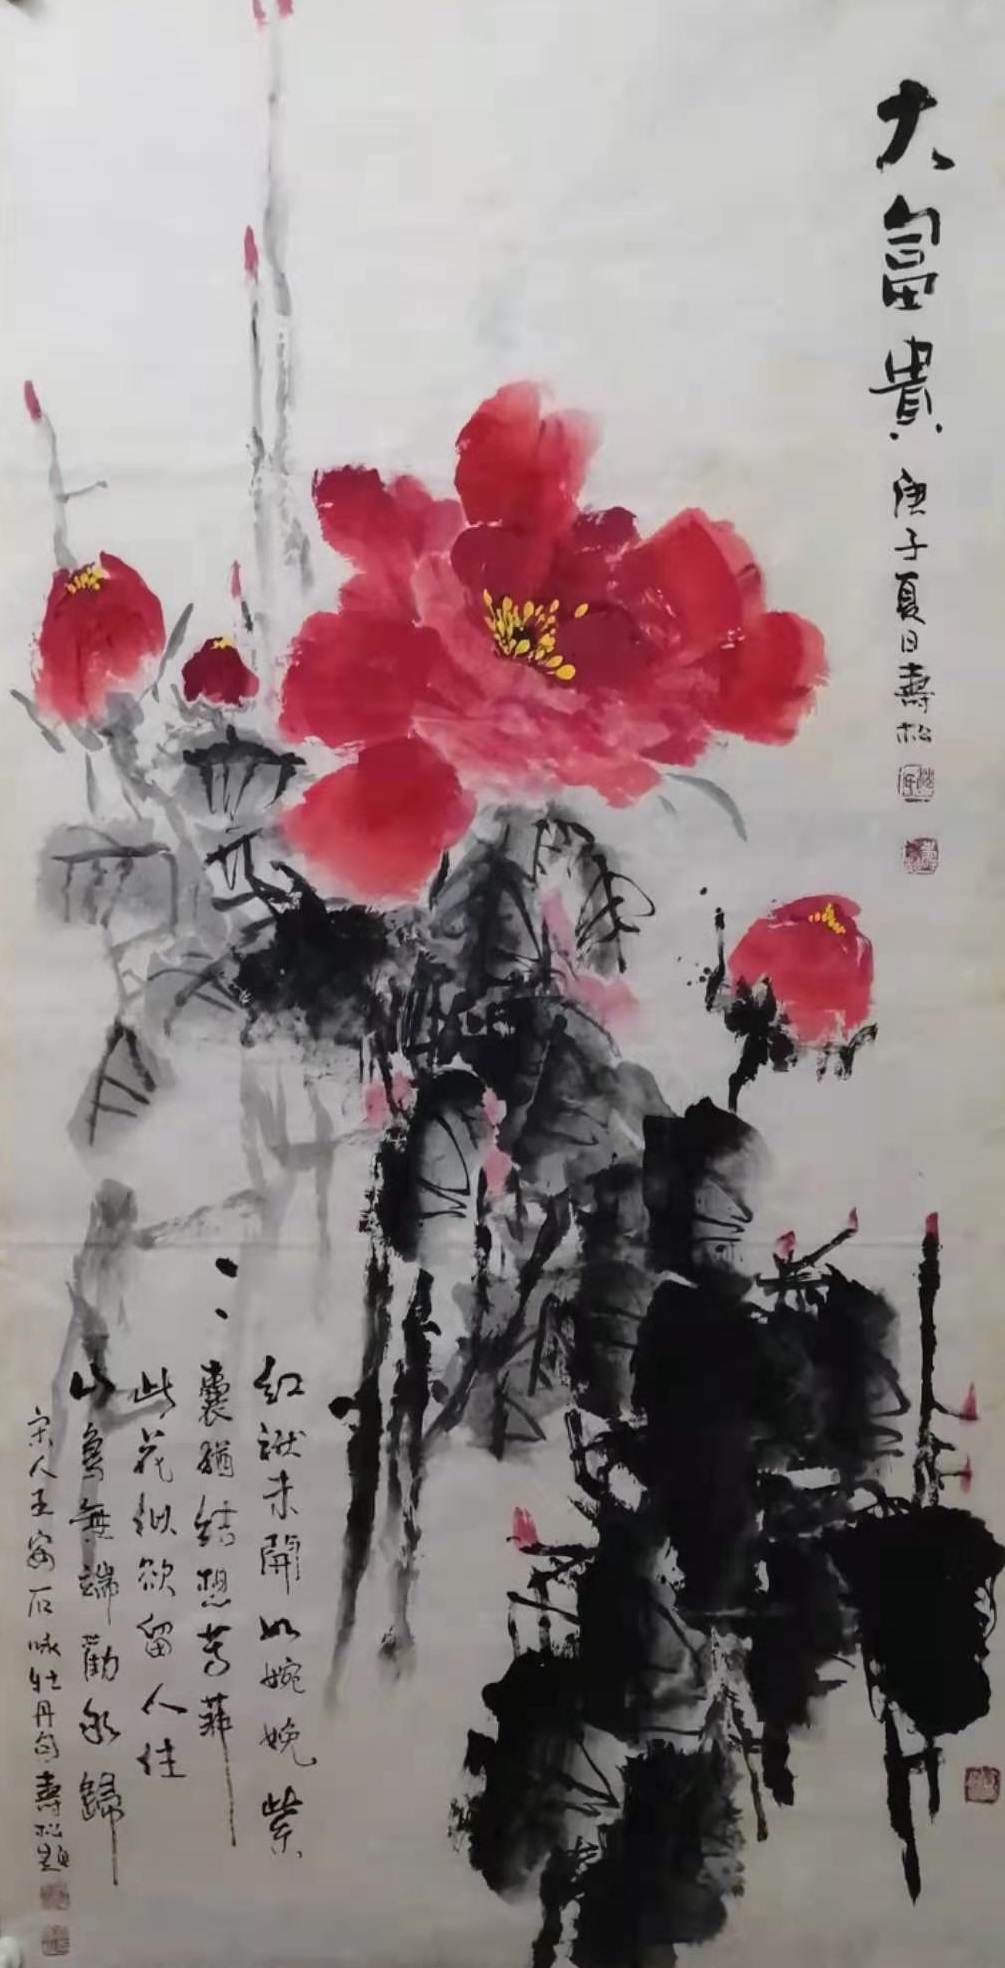 大富貴
庚子夏日壽松
紅襆未開如婉娩紫
囊猶結想芳菲
此花似欲留人住
山鳥無端勸我歸
宋人王安石咏牡丹句壽松題